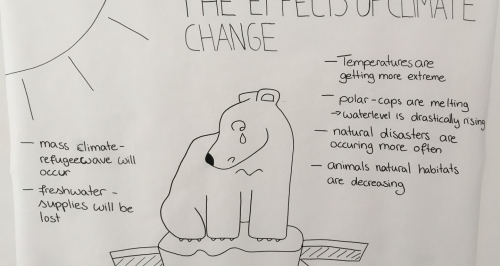 THE EFFECTS OF CLIMATE
CHANGE
— Temperatures are
getting more extreme
— polar-caps are melting
→ waterlevel is drastically rising
— natural disasters are
occuring more often
— animals natural habitats
are decreasing
— mass climate-
refugeewave will
occur
— freshwater-
supplies will be
lost